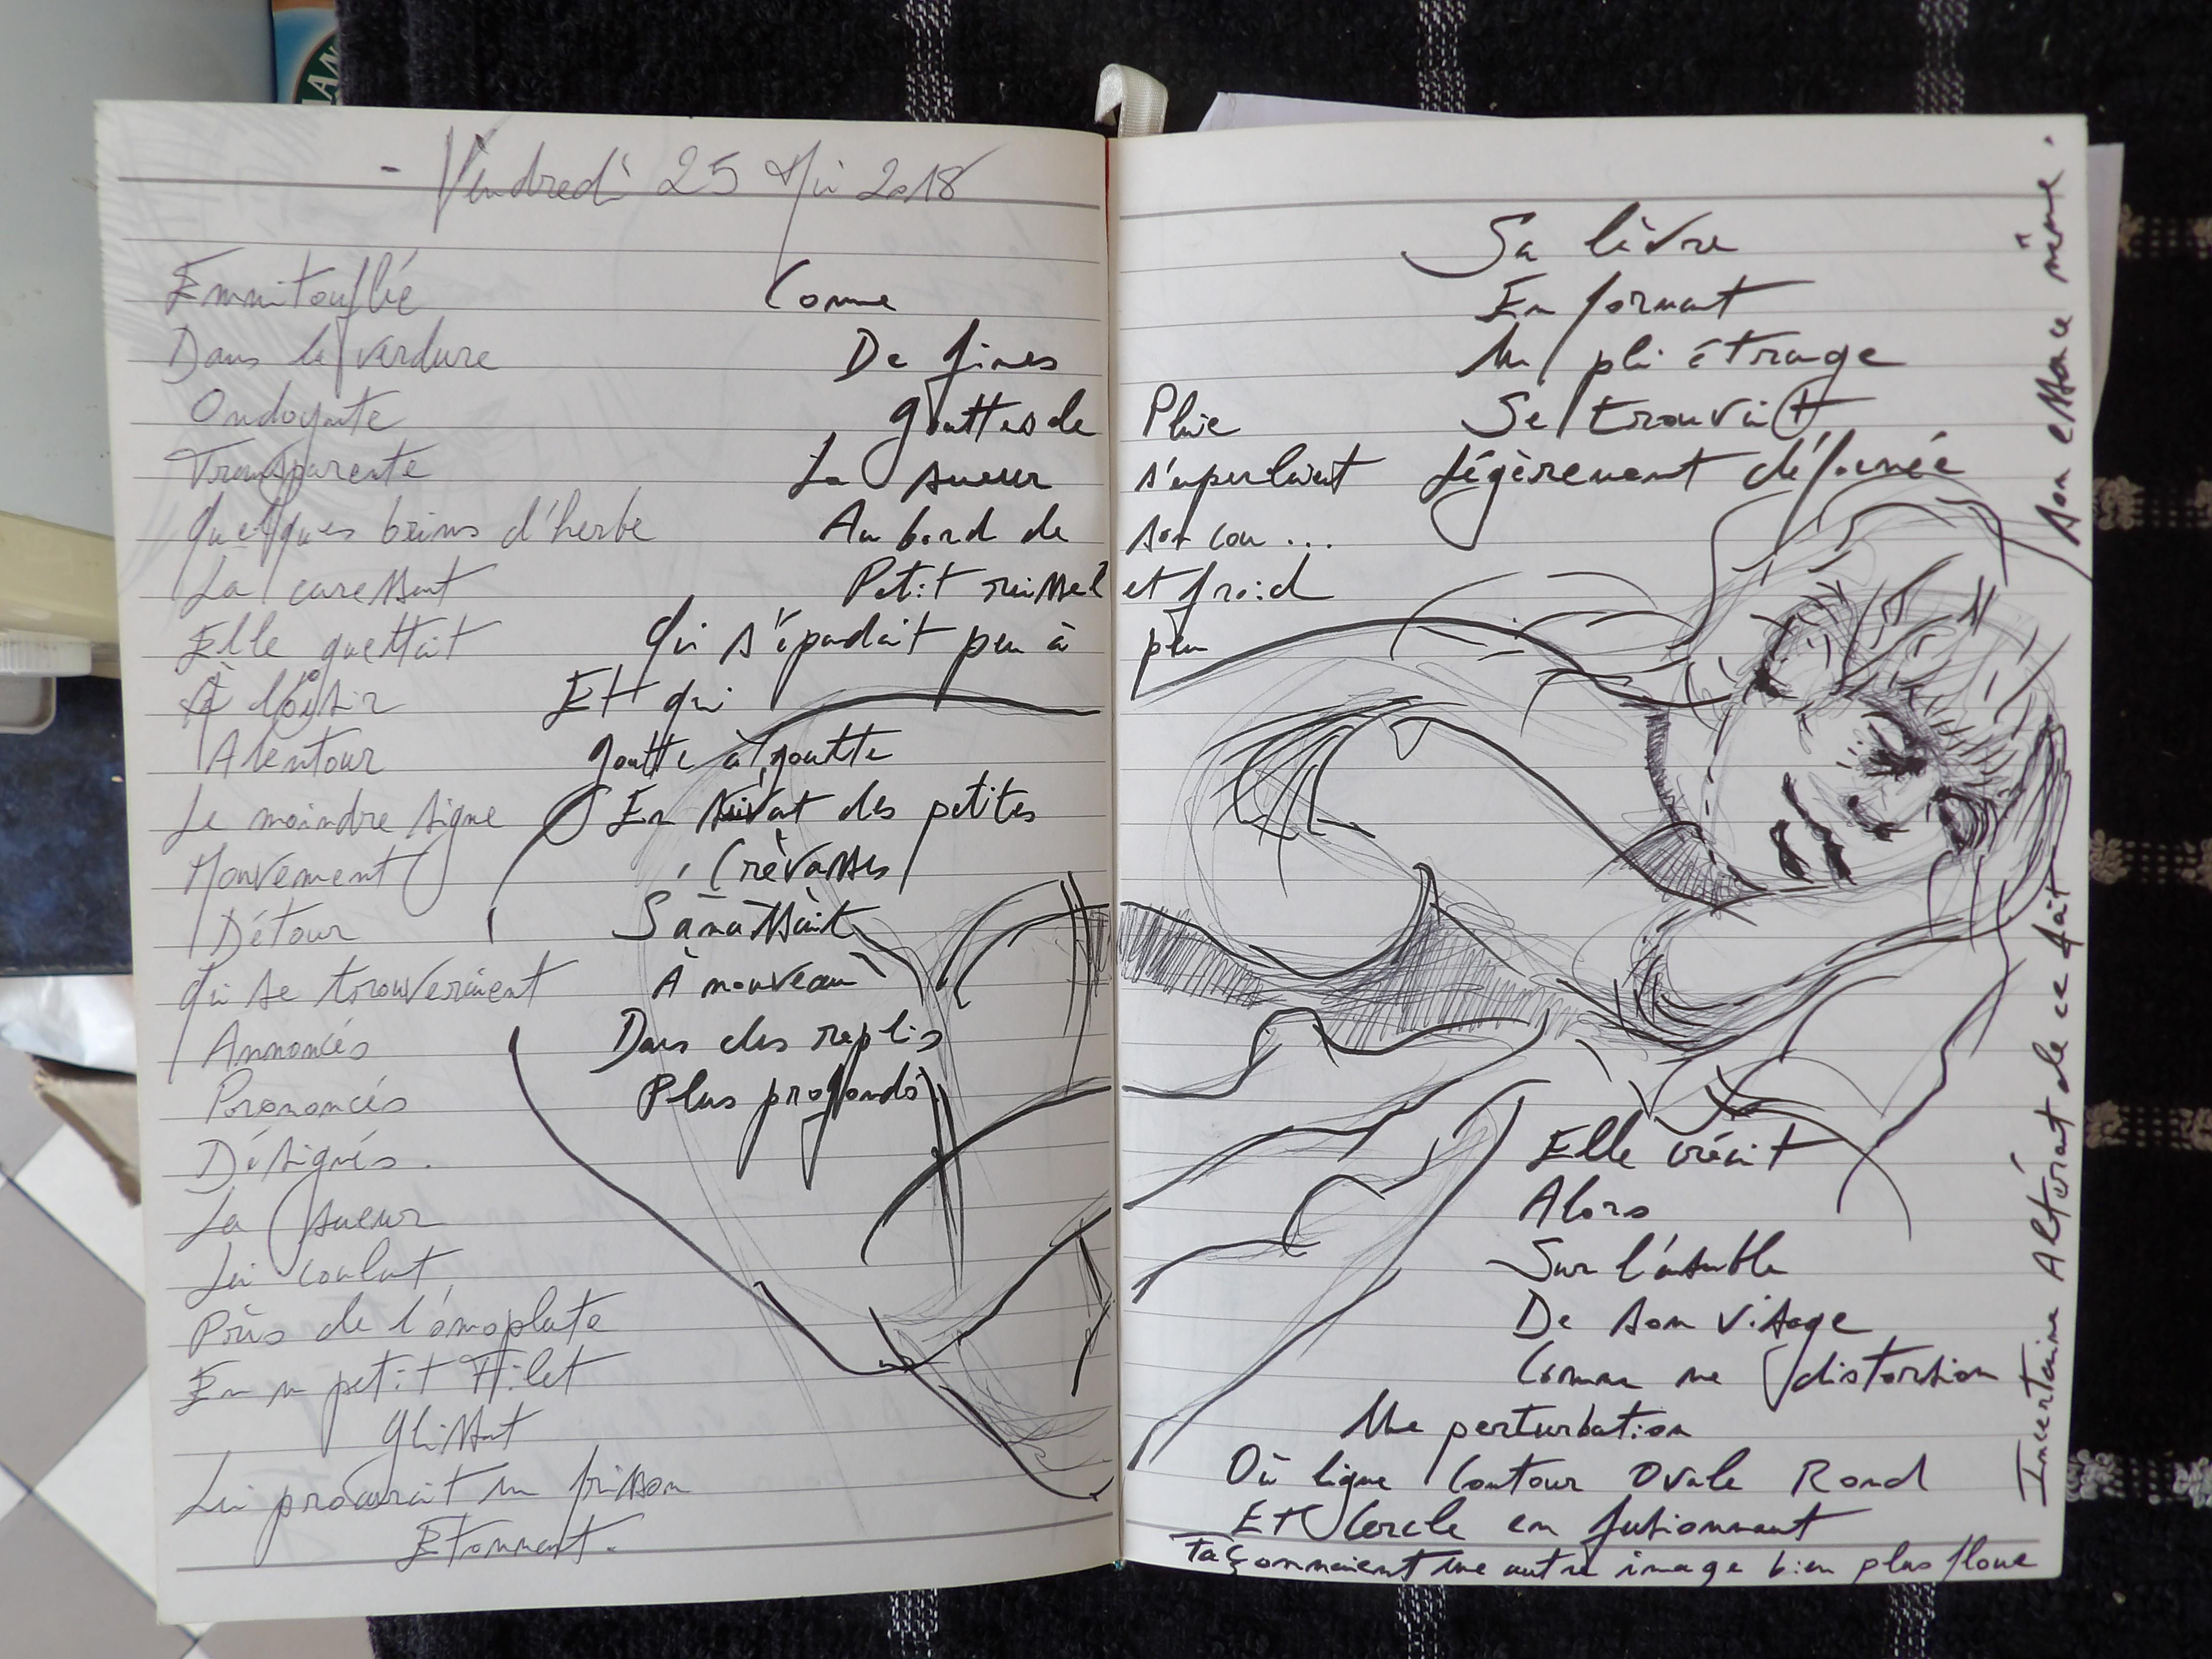 - Vendredi 25 Mai 2018
Emmitouflée
Dans la verdure
Ondoyante
Transparente
Quelques brins d'herbe
La caressant
Elle guettait
À loisir
Alentour
Le moindre signe
Mouvement
Détour
Qui se trouveraient
Annoncés
Prononcés
Désignés.
La sueur
Lui coulant
Près de l'omoplate
En un petit filet
Glissant
Lui procurait un frisson
Etonnant.
Comme
De fines
gouttes de Pluie
La sueur s'emperlaient
Au bord de son cou ...
Petit ruissel et froid
Qui s'épandait peu à peu
Et qui
goutte à goutte
En suivant des petites
Crèvasses
S'amassait
À nouveau
Dans des replis
Plus profonds
Sa lèvre
En formant
Un pli étrange
Se trouvait
Légèrement déformée
Elle créait
Alors
Sur l'ensemble
De son visage
Comme une distorsion
Une perturbation
Où ligne Contour Ovale Rond
Et Cercle en fusionnant
Façonnaient une autre image bien plus floue
Incertaine Altérant de ce fait
son essence même.